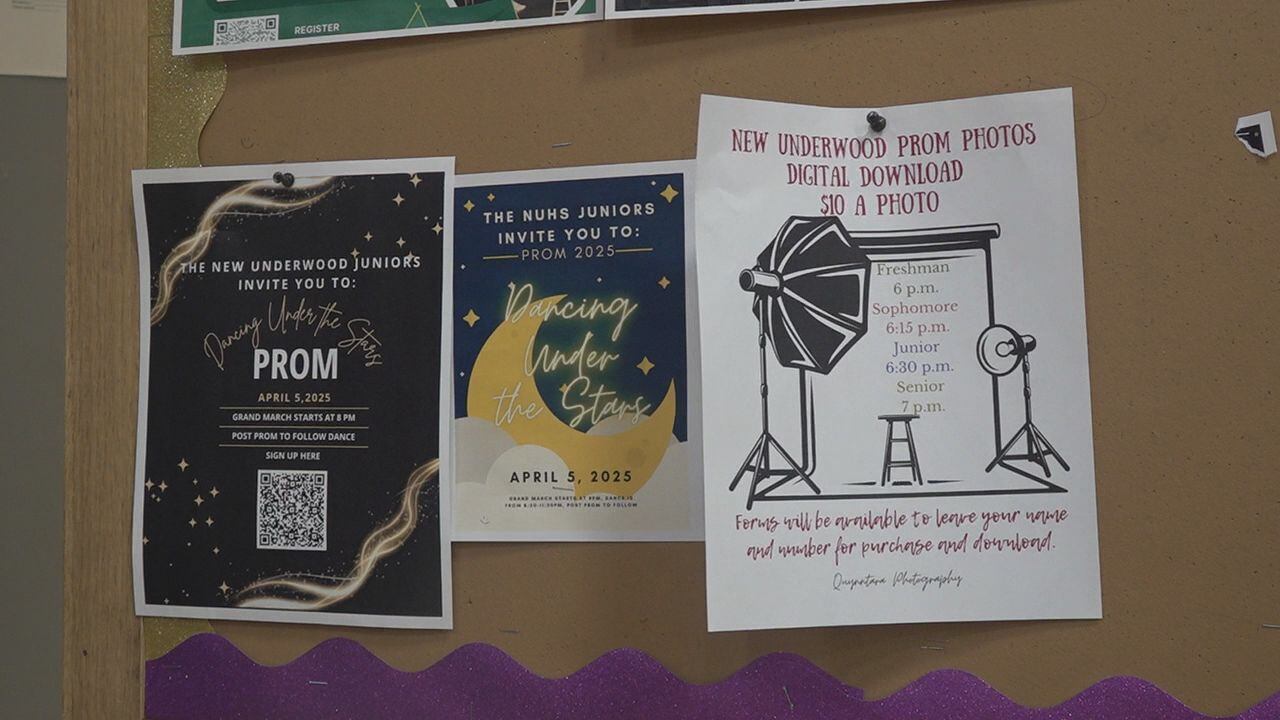 REGISTER
THE NEW UNDERWOOD JUNIORS
INVITE YOU TO:
Dancing Under the Stars
PROM
APRIL 5,2025
GRAND MARCH STARTS AT 8 PM
POST PROM TO FOLLOW DANCE
SIGN UP HERE
THE NUHS JUNIORS
INVITE YOU TO:
PROM 2025
Dancing
Under
the Stars
APRIL 5, 2025
GRAND MARCH STARTS AT 8PM, DANCE IS
FROM 8:30-11:30PM, POST PROM TO FOLLOW
NEW UNDERWOOD PROM PHOTOS
DIGITAL DOWNLOAD
$10 A PHOTO
Freshman
6 p.m.
Sophomore
6:15 p.m.
Junior
6:30 p.m.
Senior
7 p.m.
Forms will be available to leave your name
and number for purchase and download.
Quynntara Photography